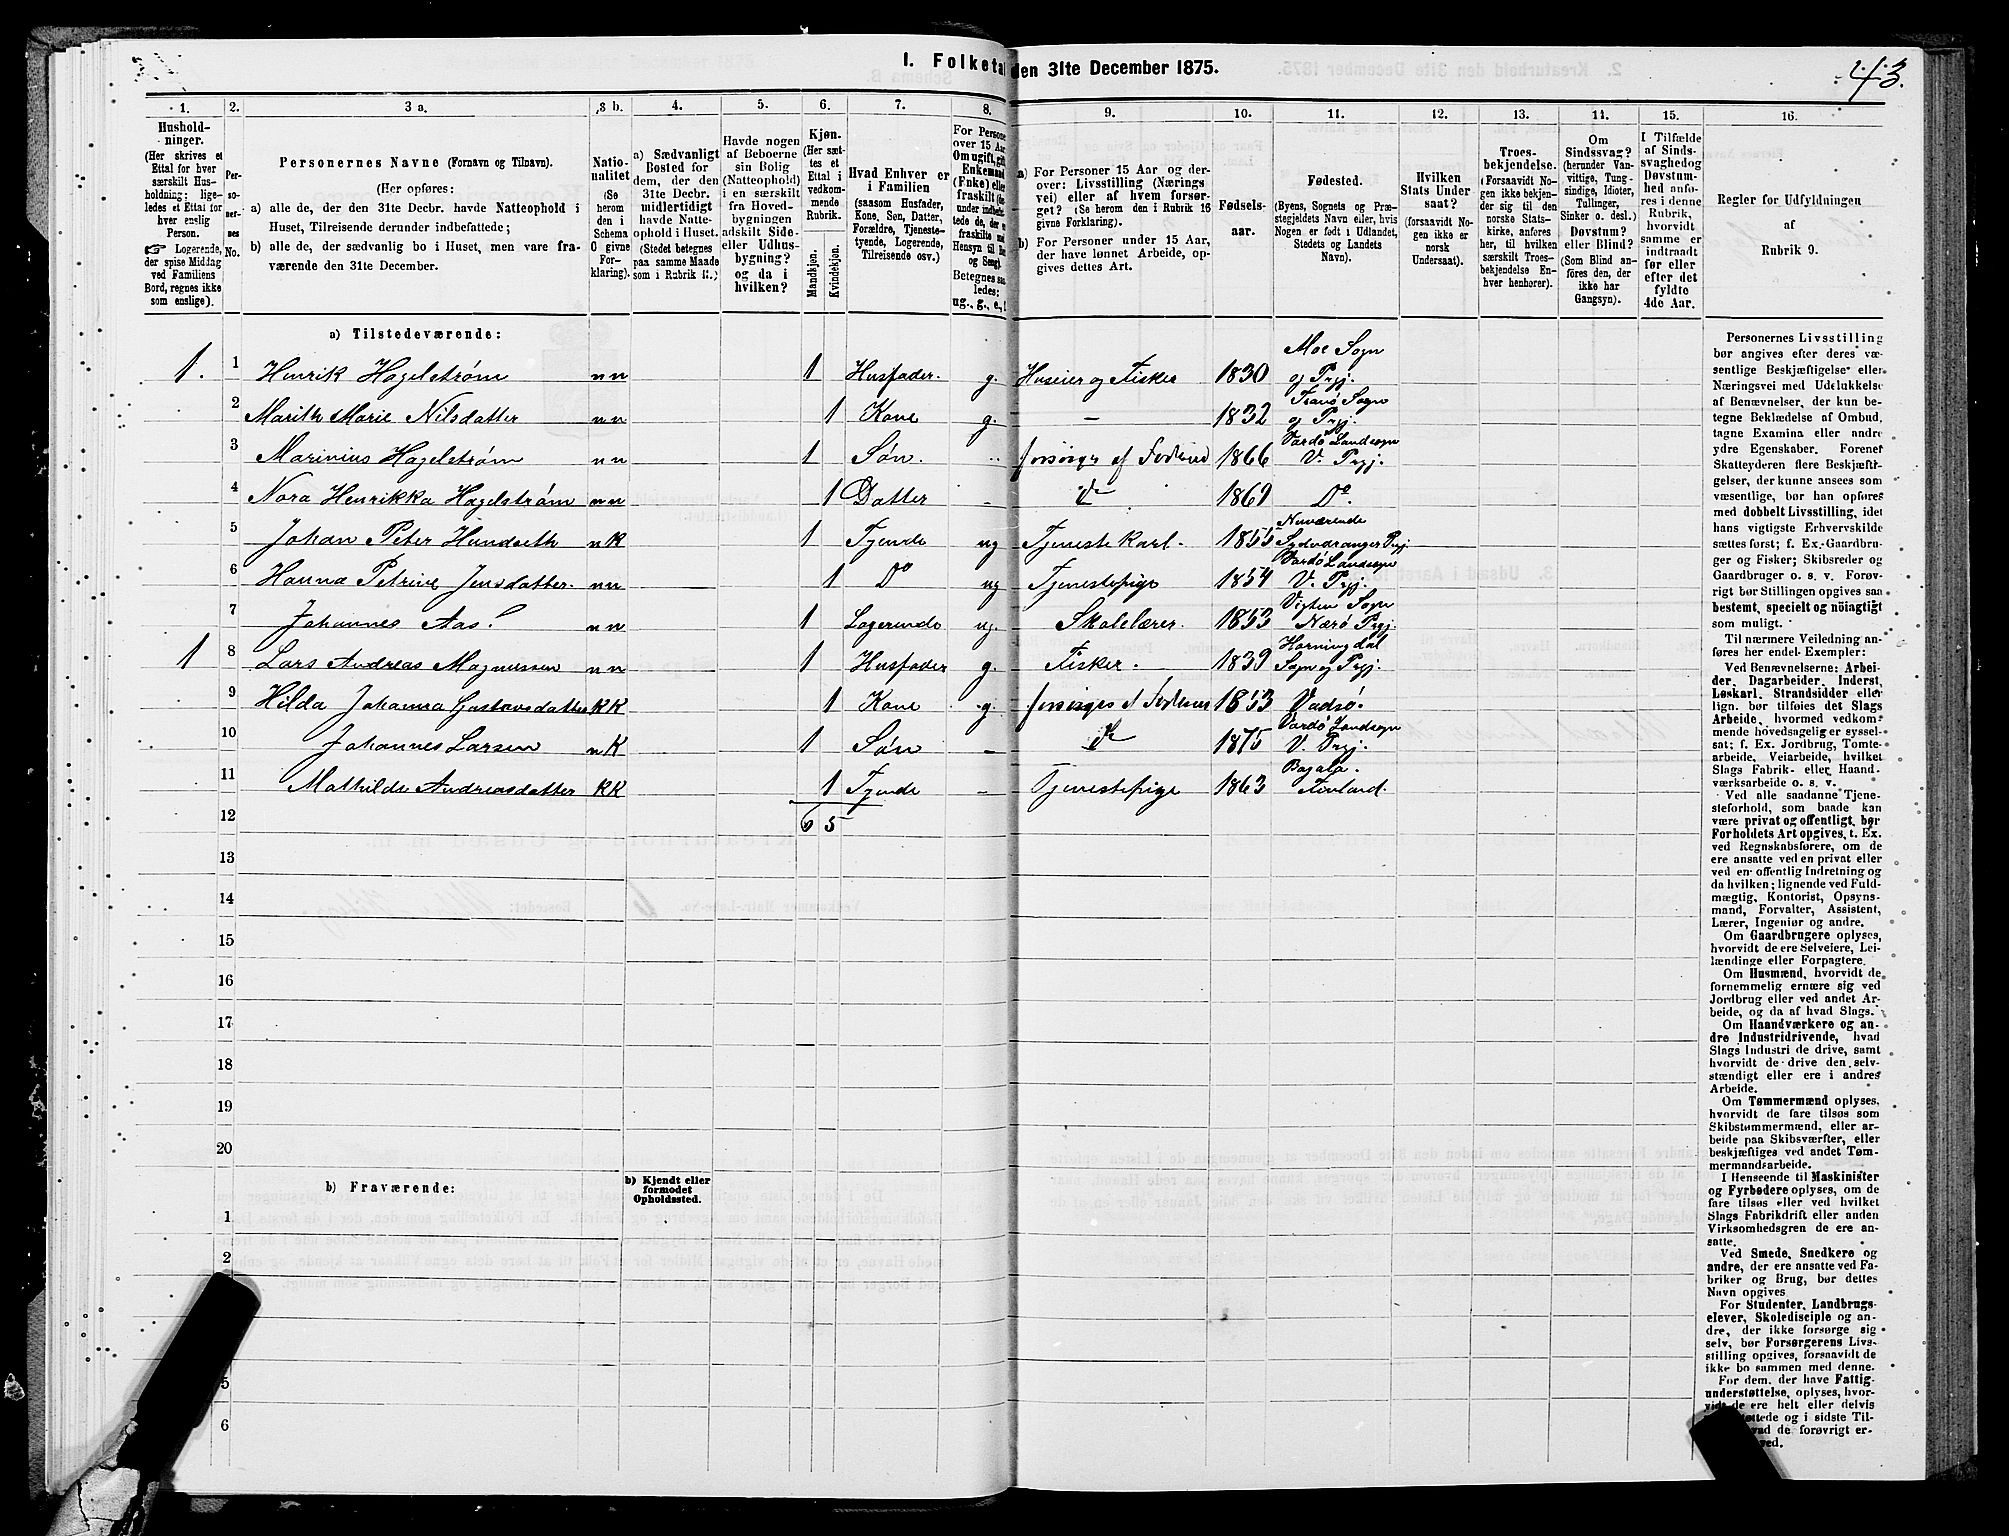 1. Folketal den 31te December 1875.
43.
1.
Hushold-
ninger.
(Her skrives et
Ettal for hver
særskilt Hus-
holdning; lige-
ledes et Ettal for
hver enslig
Person.
☞ Logerende,
der spise Middag
ved Familiens
Bord, regnes ikke
som enslige).
2.
Per-
so-
ner-
nes
No.
3 a.
Personernes Navne (Fornavn og Tilnavn).
(Her opføres:
a) alle de, der den 31te Decbr. havde Natteophold i
Huset, Tilreisende derunder indbefattede;
b) alle de, der sædvanlig bo i Huset, men vare fra-
værende den 31te December.
3 b.
Natio-
nalitet
(Se
herom
den i
Schema
C givne
For-
klaring).
4.
a) Sædvanligt
Bosted for
dem, der den
31te Decbr.
midlertidigt
havde Natte-
ophold i Huset.
(Stedet betegnes
paa samme Maade
som i Rubrik 11.)
5.
Havde nogen
af Beboerne
sin Bolig
(Natteophold)
i en særskilt
fra Hoved-
bygningen
adskilt Side-
eller Udhus-
bygning?
og da i
hvilken?
6.
Kjøn.
(Her sæt-
tes et
Ettal i
vedkom-
mende
Rubrik.
Mandkjøn.
Kvindekjøn.
7.
Hvad Enhver er
i Familien
(saasom Husfader,
Kone, Søn, Datter,
Forældre, Tjeneste-
tyende, Logerende,
Tilreisende osv.)
8.
For Persone
over 15 Aar
Om ugift, gift
Enkemand
(Enke) eller
fraskilt
Betegnes saa-
ledes:
ug., g., e.,
9.
a) For Personer 15 Aar og der-
over: Livsstilling (Nærings
vei) eller af hvem forsør-
get? (Se herom den i Rubrik 16
givne Forklaring).
b) For Personer under 15 Aar,
der have lønnet Arbeide, op-
gives dettes Art.
10.
Fødsels-
aar.
11.
Fødested.
(Byens, Sognets og Præ-
stegjeldets Navn eller, hvis
Nogen er født i Udlandet,
Stedets og Landets
Navn).
12.
Hvilken
Stats Under
saat?
(forsaavidt No-
gen ikke er
norsk
Undersaat).
13.
Troes-
bekjendelse.
(Forsaavidt No-
gen ikke bekjen-
der sig til den
norske Stats-
kirke, anføres
her, til hvilken
særskilt Troes-
bekjendelse En-
hver henhører).
14.
Om
Sindssvag?
(herunder Van-
vittige, Tung-
sindige, Idioter,
Tullinger,
Sinker o. desl.)
Døvstum?
eller Blind?
(Som Blind an-
føres den, der
ikke har
Gangsyn).
15.
I Tilfælde
af Sinds-
svaghedog
Døvstum-
hed anfø-
res i denne
Rubrik,
hvorvidt
samme er
indtraadt
før eller
efter det
fyldte
4de Aar.
16.
Regler for Udfyldningen
af
Rubrik 9.
a) Tilstedeværende:
1. 1 Henrik Hagelstrøm nn 1 Husfader g. Huseier og Fisker 1830 Moe Sogn og Prgj.
2 Marith Marie Nilsdatter nn 1 Kone g. - 1832 Tranø Sogn og Prgj.
3 Marinius Hagelstrøm nn 1 Søn. 1866 Vardø Landsogn V. Prgj.
4 Nora Henrikka Hagelstrøm nn 1 Datter - 1869 Do
5 Johan Peter nK 1 Tjende ug Tjenestekarl. 1855 Nuværende Sydvaranger Prgj.
6 Hanna Petrine Jensdatter. nn 1 Do ug Tjenestepige 1854 Vardø Landsogn V. Prgj.
7 Johannes Aas nn 1 Logerende ug. Skolelærer. 1853 Vigten Sogn Nærø Prgj.
1 8 Lars Andreas Magnussen nn 1 Husfader g. Fisker. 1839 Horningdal Sogn og Prgj.
9 Hilda Johanna Gustavsdatter KK 1 Kone g. 1853 Vadsø.
10 Johannes Larsen nK 1 Søn - 1875 Vardø Landsogn V. Prgj.
11 Mathilde Andreasdatter KK 1 Tjende - Tjenestepige 1863 Finland.
12 6 5
13
14
15
16
17
18
19
20
b) Fraværende:
b) Kjendt eller
formodet
Opholdssted.
1
2
5
6
Personernes Livsstilling
bør angives efter deres væ-
sentlige Beskjæftigelse eller
Næringsvei med Udelukkelse
af Benævnelser, der kun be-
tegne Beklædelse af Ombud,
tagne Examina eller andre
ydre Egenskaber. Forener
Skatteyderen flere Beskjæfti-
gelser, der kunne ansees som
væsentlige, bør han opføres
med dobbelt Livsstilling, idet
hans vigtigste Erhvervskilde
sættes først; f. Ex. Gaardbru-
ger og Fisker; Skibsreder og
Gaardbruger o. s. v. Forøv-
rigt bør Stillingen opgives saa
bestemt, specielt og nøiagtigt
som muligt.
Til nærmere Veiledning an-
føres her endel Exempler:
Ved Benævnelserne: Arbei-
der, Dagarbeider, Inderst,
Løskarl, Strandsidder eller
lign. bør tilføies det Slags
Arbeide, hvormed vedkom-
mende hovedsagelig er syssel-
sat; f. Ex. Jordbrug, Tomte-
arbeide, Veiarbeide, hvilket
Slags Fabrik- eller Haand-
værksarbeide o. s. v.
Ved alle saadanne Tjene-
steforhold, som baade kan
være privat og offentligt, bør
Forholdets Art opgives, t. Ex.
ved Regnskabsførere, om de
ere ansatte ved en privat eller
ved en offentlig Indretning og
da hvilken; lignende ved Fuld-
mægtig, Kontorist, Opsyns-
mand, Forvalter, Assistent,
Lærer, Ingeniør og andre.
Om Gaardbrugere oplyses,
hvorvidt de ere Selveiere, Lei-
lændinge eller Forpagtere.
Om Husmænd, hvorvidt de
fornemmelig ernære sig ved
Jordbrug eller ved andet Ar-
beide, og da af hvad Slags.
Om Haandværkere og an-
dre Industridrivende, hvad
Slags Industri de drive, samt
hvorvidt de drive den selv-
stændigt eller ere i andres
Arbeide.
Om Tømmermænd oplyses,
hvorvidt de fare tilsøs som
Skibstømmermænd, eller ar-
beide paa Skibsværfter, eller
beskjæftiges ved andet Tøm-
mermandsarbeide.
I Henseende til Maskinister
og Fyrbødere oplyses, om de
fare tilsøs eller ved hvilket
Slags Fabrikdrift eller anden
Virksomhedsgren de ere an-
satte.
Ved Smede, Snedkere og
andre, der ere ansatte ved Fa-
briker og Brug, bør dettes
Navn opgives
For Studenter, Landbrugs-
elever, Skoledisciple og an-
dre, der ikke forsørge sig
selv, bør Forsørgerens Livs-
stilling opgives, forsaavidt de
ikke bo sammen med denne.
For dem, der have Fattig-
understøttelse, oplyses, hvor-
de ere helt eller delvis
og i sidste Til-
de forøvrigt er-